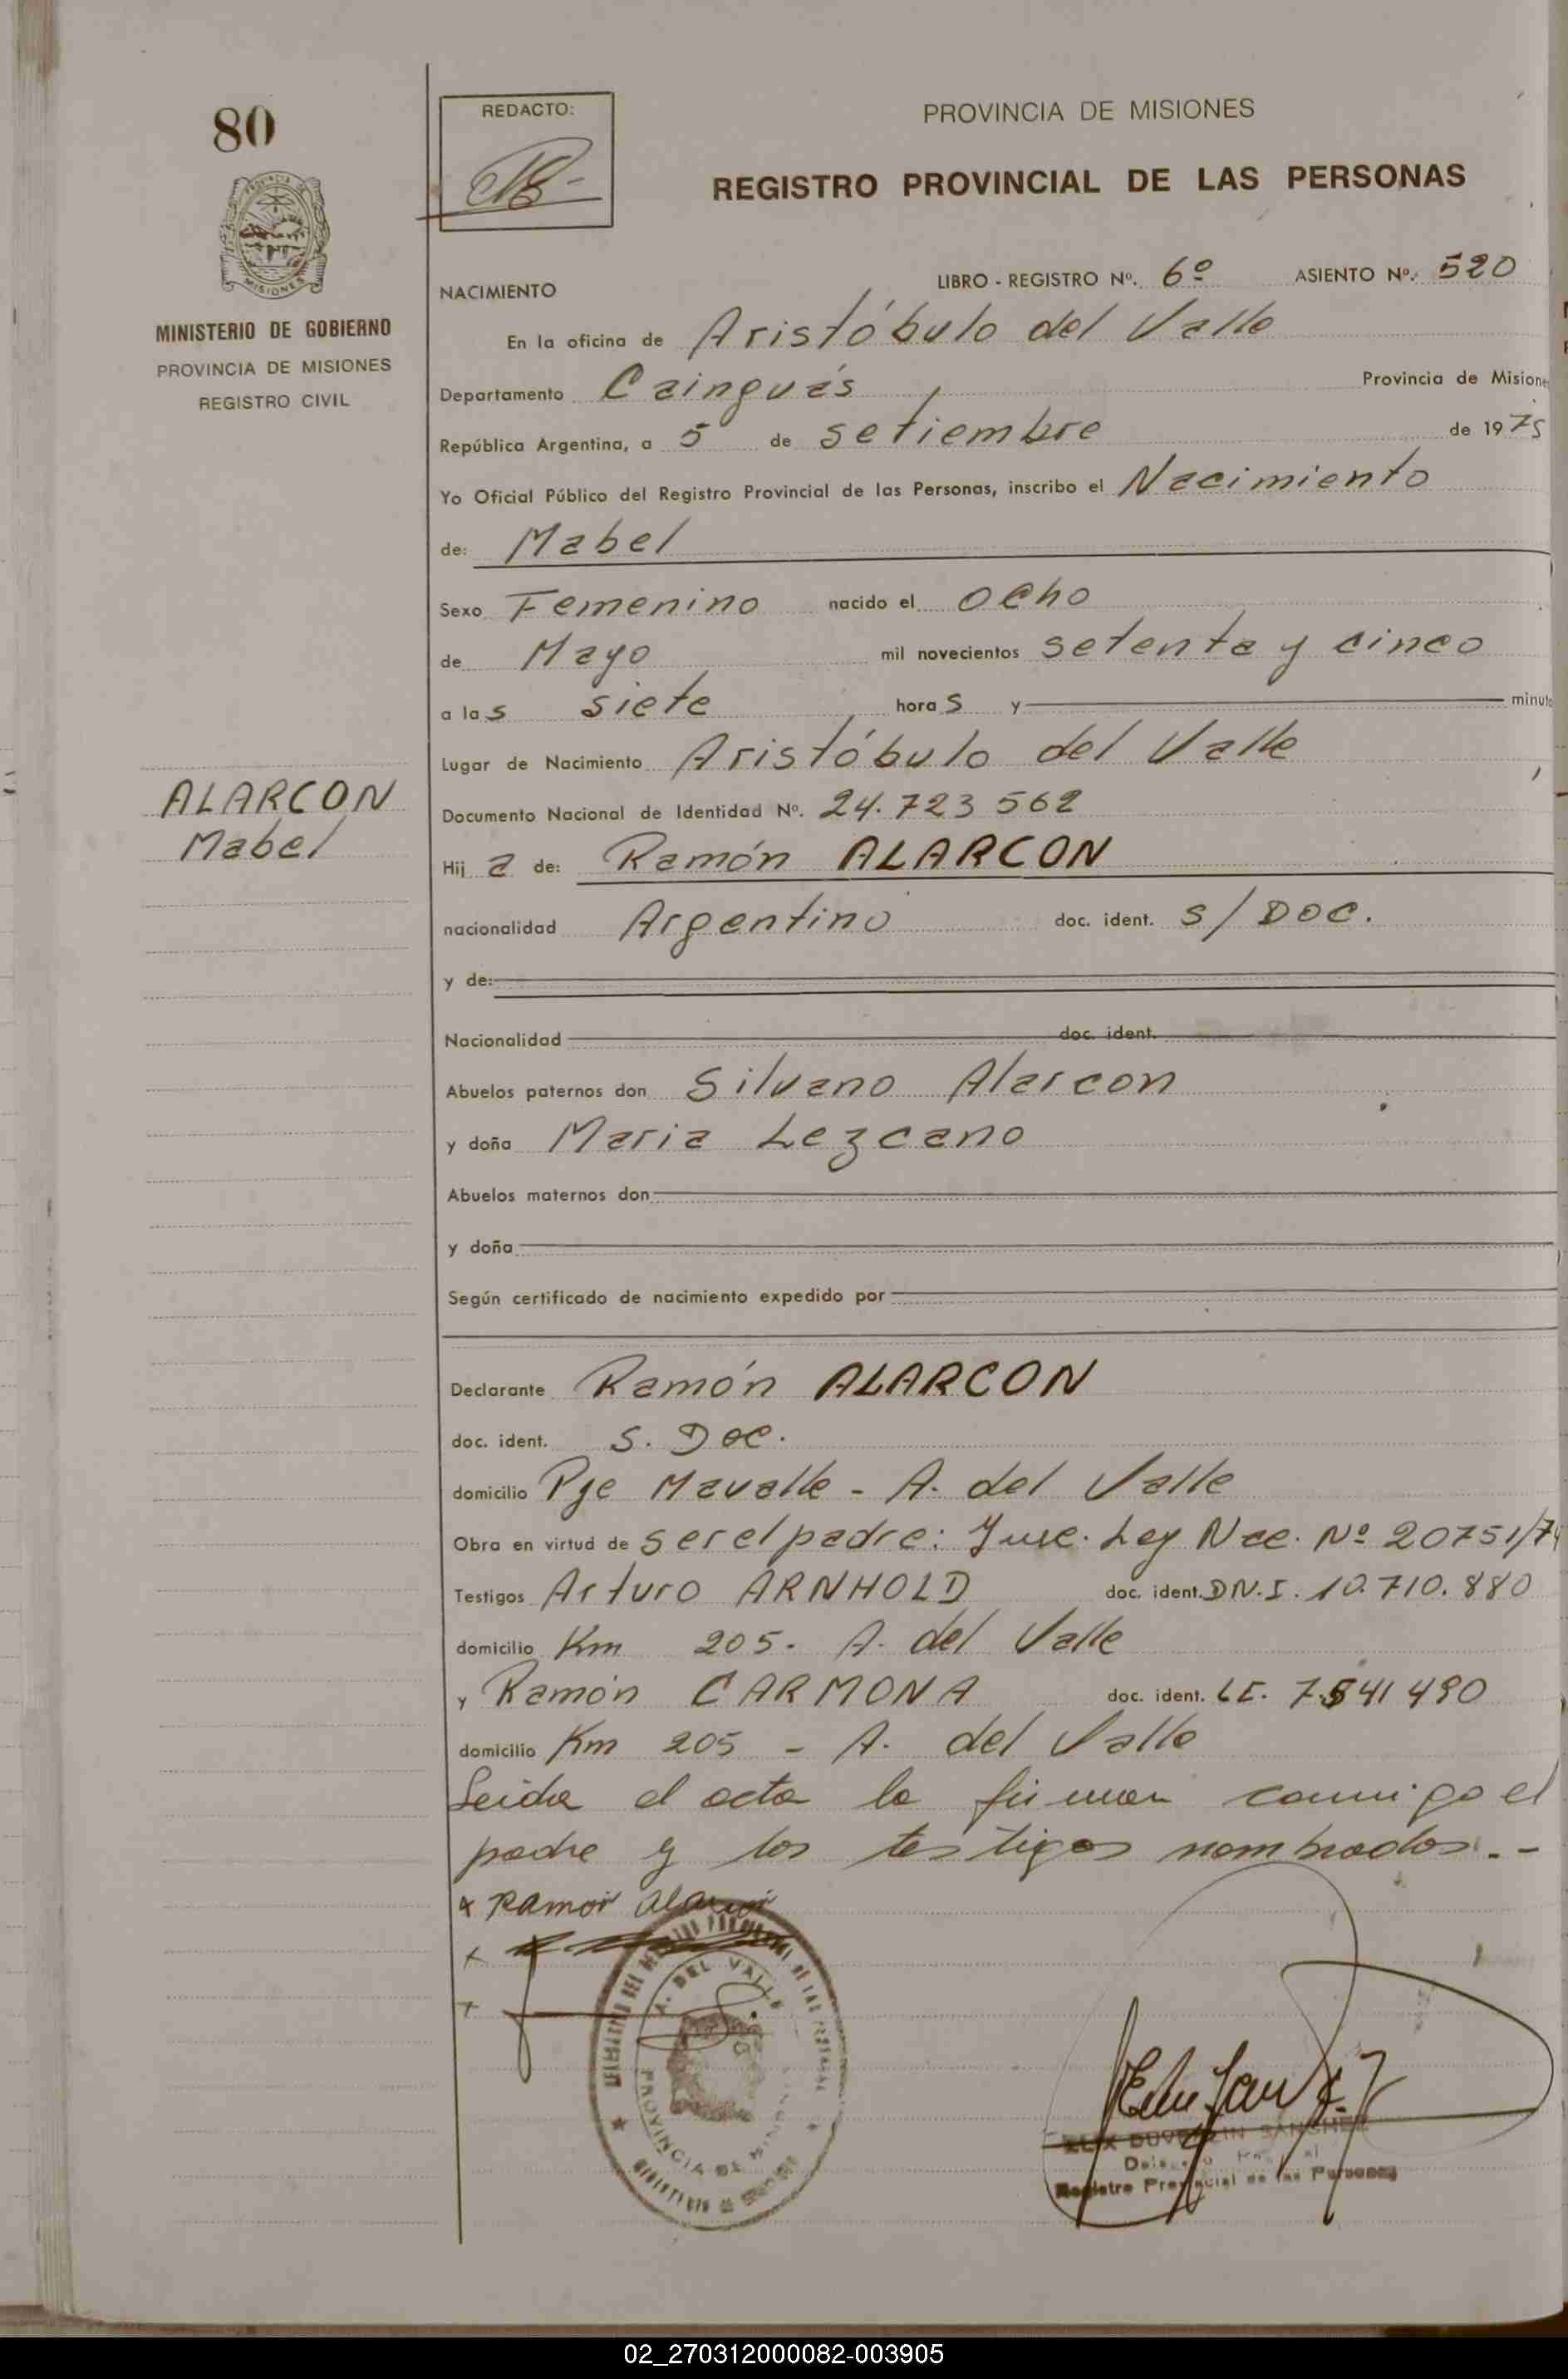 80
REDACTO:
PROVINCIA DE MISIONES
REGISTRO PROVINCIAL DE LAS PERSONAS
MINISTERIO DE GOBIERNO
PROVINCIA DE MISIONES
REGISTRO CIVIL
NACIMIENTO
LIBRO - REGISTRO Nº. 6º ASIENTO Nº. 520
En la oficina de Aristóbulo del Valle
Departamento Cainguás Provincia de Misione
República Argentina, a 5 de Setiembre de 1975
Yo Oficial Público del Registro Provincial de las Personas, inscribo el Nacimiento
de: Mabel
Sexo Femenino nacido el ocho
de Mayo mil novecientos setenta y cinco
a las siete horas y minuto
Lugar de Nacimiento Aristóbulo del Valle
ALARCON
Mabel
Documento Nacional de Identidad Nº. 24.723 562
Hija de: Ramón ALARCON
nacionalidad Argentino doc. ident. S/DOC.
y de:
Nacionalidad doc. ident.
Abuelos paternos don Silvano Alarcon
y doña Maria Lezcano
Abuelos maternos don
y doña
Según certificado de nacimiento expedido por
Declarante Ramón ALARCON
doc. ident. S. Doc.
domicilio Pje Mavalle - A. del Valle
Obra en virtud de ser el padre: Ley Nº 20751/7
Testigos Arturo ARNHOLD doc. ident. DN.I. 10.710.880
domicilio Km 205. A. del Valle
y Ramón CARMONA doc. ident. LE. 7.541 490
domicilio Km 205 - A. del Valle
Leida el acta la firman conmigo el
padre y los testigos nombrados. -
x Ramon Alarcon
x
x
A. DEL VALLE
PROVINCIA DE
DUVERLIN SANCHEZ
Registro Provincial de las Personas
02_270312000082-003905